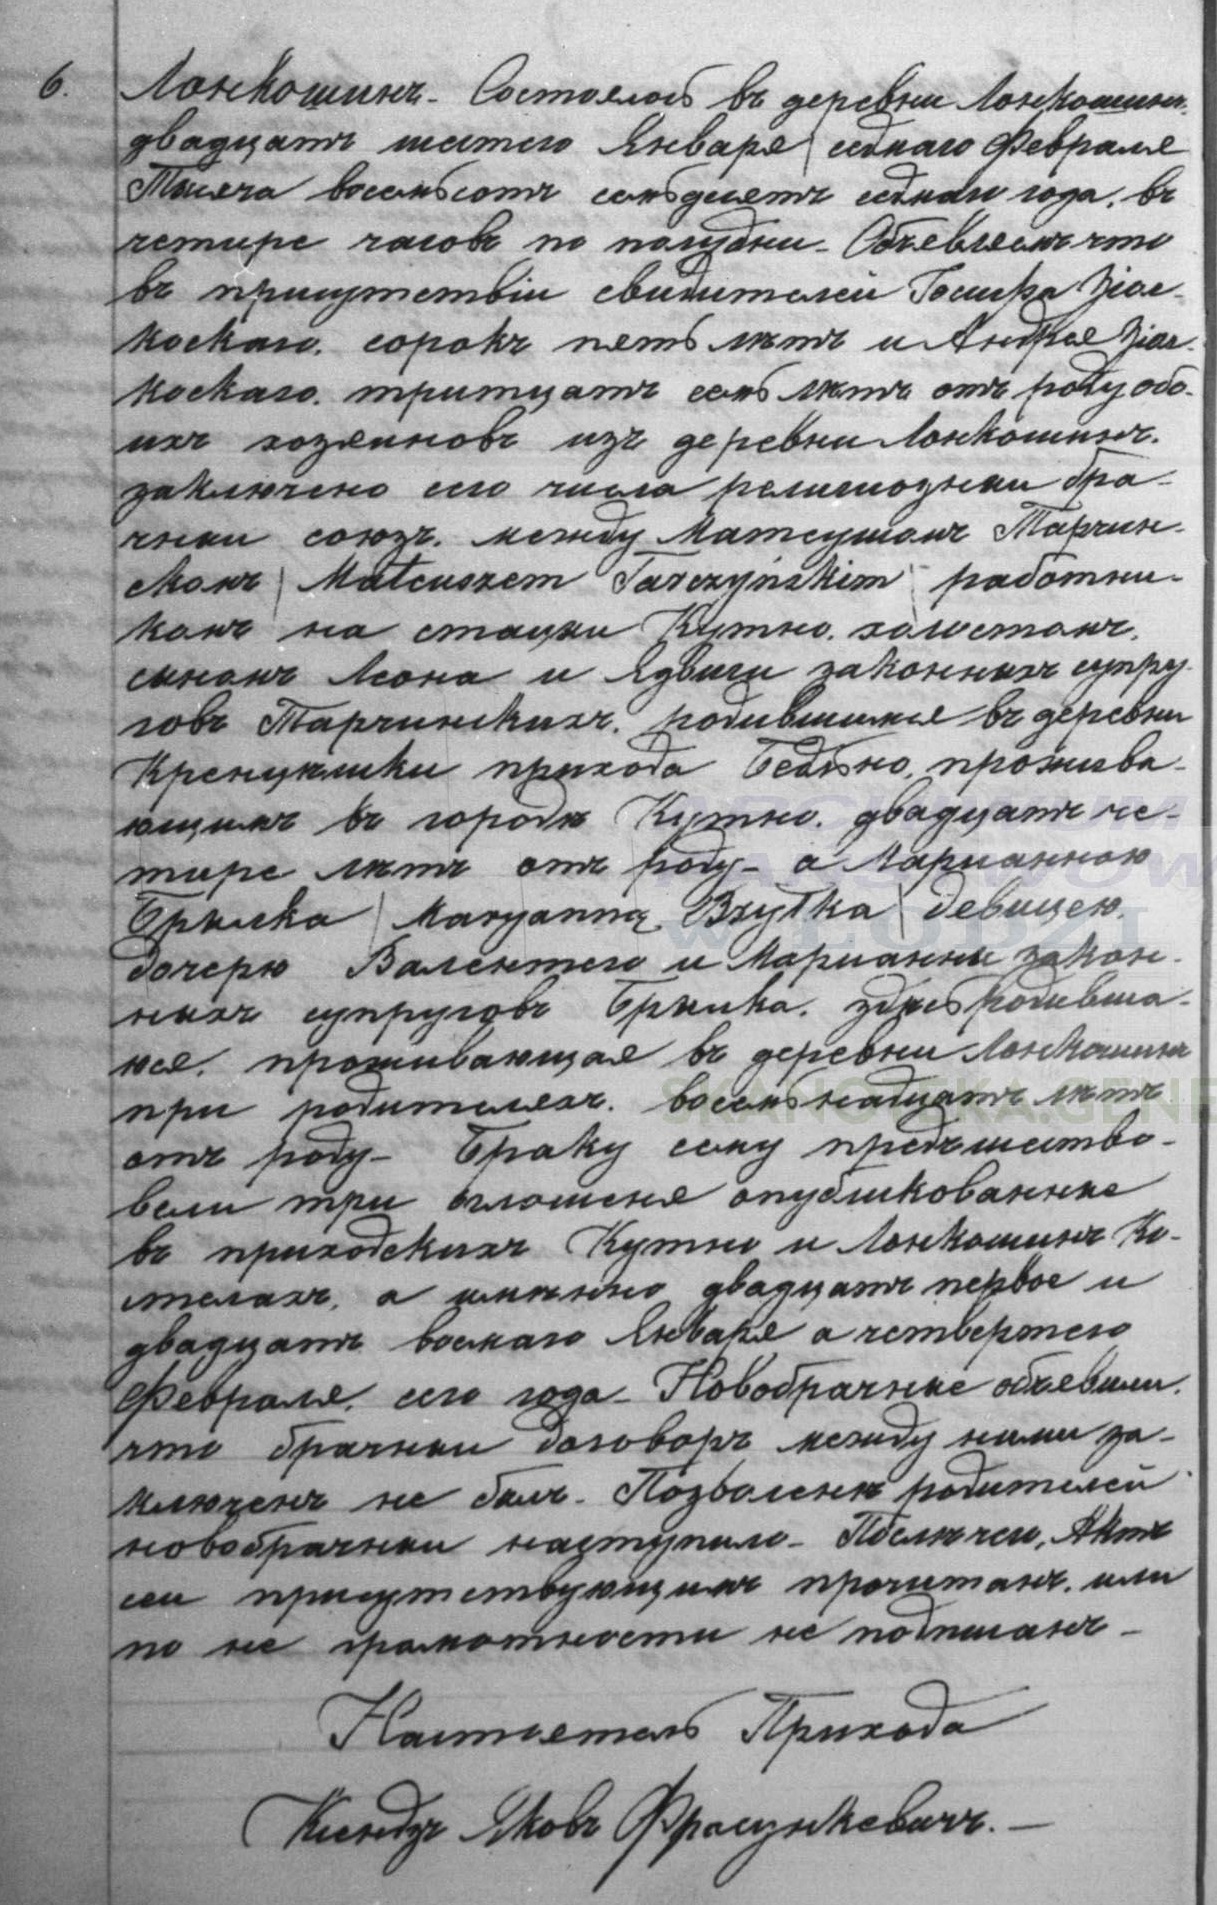 6. Лонкошинъ. Состоялось въ деревни Лонкошинъ.
двадцать шестого Января / седмаго Февраля
Тысяча восемьсотъ семьдесятъ седмаго года. въ
четыре часовъ по полудни. Объявляемъ что
въ присутствіи свидителей Іосифа
коскаго. сорокъ пять лѣтъ и Андрея
коскаго. тритцать семь лѣтъ отъ роду обо-
ихъ хозяиновъ изъ деревни Лонкошинъ.
заключено сего числа религиозныи бра-
чныи союзъ. между Матеушомъ Тарчин-
скомъ / Mateuszem Tarczyńskim / работни-
комъ на стацыи Кутно. холостомъ.
сыномъ Леона и Ядвиги законныхъ супру-
говъ Тарчинскихъ. родившимся въ деревни
прихода Бедльно, прожива-
ющимъ въ городѣ Кутно. двадцать че-
тире лѣтъ отъ роду- а Марианною
Брылка / Maryanną Bryłka / девицею.
дочерю Валентего и Марианны закон-
ныхъ супруговъ Брылка. здѣсь родивша-
юся. проживающая въ деревни Лонкошинъ
при родителяхъ. восемьнадцать лѣтъ
отъ роду- Браку сему предшество-
вали три оглошеня опубликованные
въ приходскихъ Кутно и Лонкошинъ Ко-
стелахъ. а именно двадцать первое и
двадцать восмаго Января а четвертего
Февраля. сего года- Новобрачные объевили.
что брачныи договоръ между ними за-
ключенъ не былъ- Позволенѣ родителей
новобрачныи наступило- Актъ
сеи присутствующимъ прочитанъ. или
по не грамотности не подписанъ-
Настоятель Прихода
Ксендзъ Яковъ Фрасункевичъ.-
ARCHIWUM
PAŃSTWOWE
W ŁODZI
SKANOTEKA.GENE